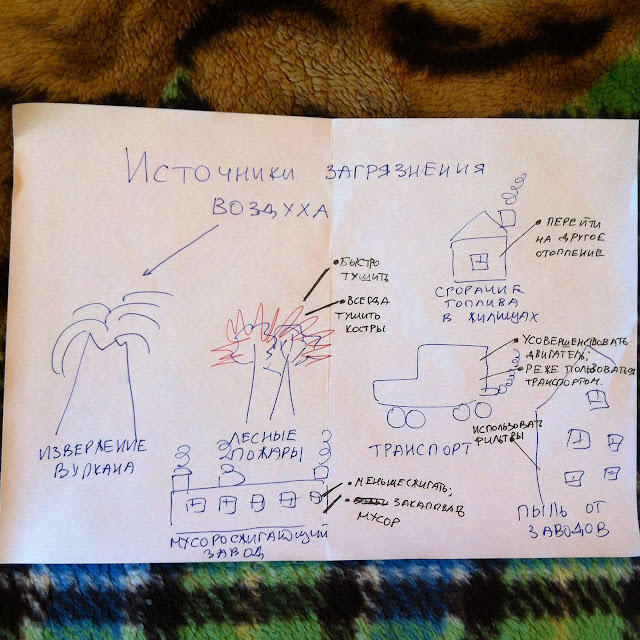 Источники загрязнения
воздуха
• перейти
на другое
отопление
сгорание
топлива
в жилищах
• быстро
тушить
• всегда
тушить
костры
извержение
вулкана
лесные
пожары
• усовершенствовать
двигатель;
• реже пользоваться
транспортом.
транспорт
использовать
фильтры
пыль от
заводов
• меньше сжигать;
• закапывать
мусор
мусоросжигающий
завод